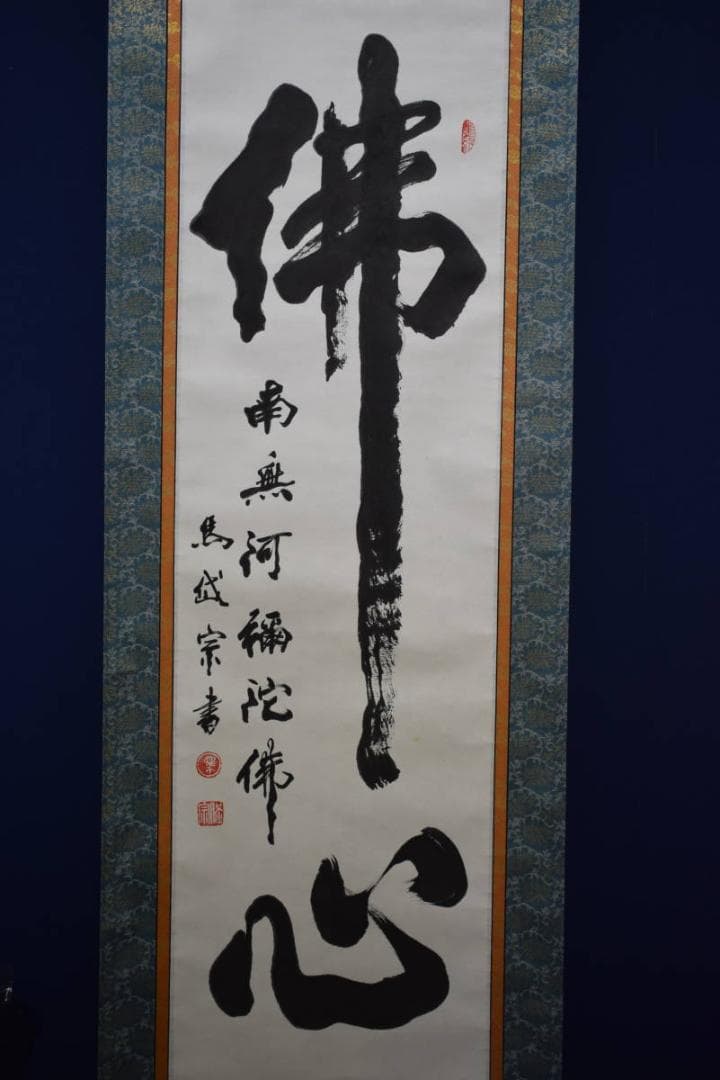 佛心
南無阿彌陀佛
馬岱宗書